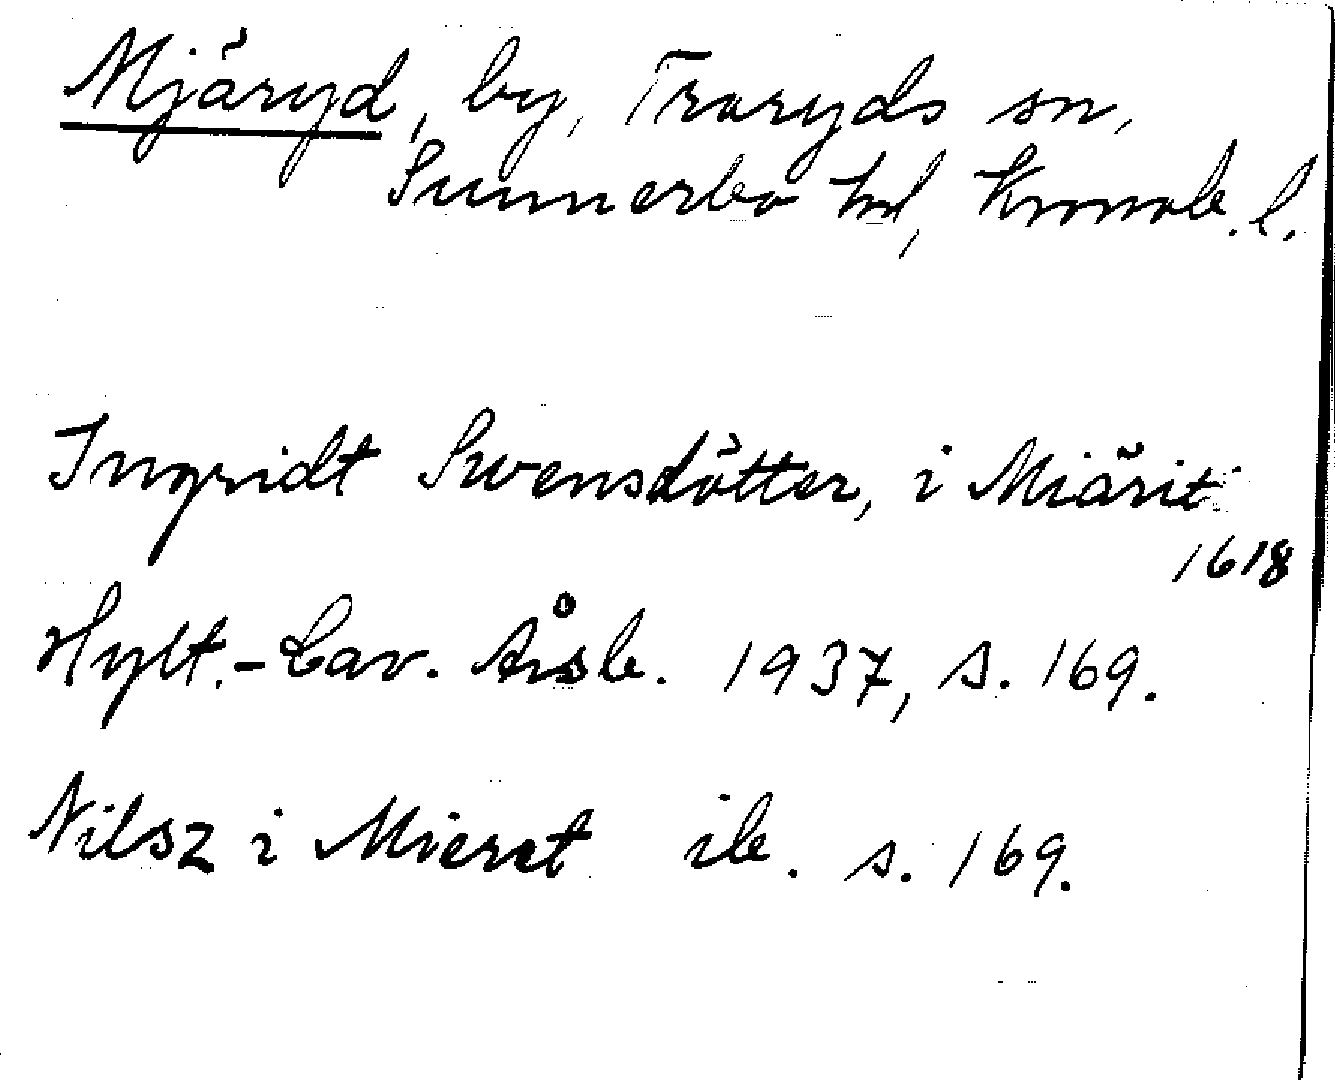 Mjäryd, by, Traryds sn,
Sunnerbo hd, Kronob. l.
Ingridt Swensdötter, i Miärit
1618
Hylt.-Cav. Årsb. 1937, s. 169.
Nilsz i Mieret ib. s. 169.